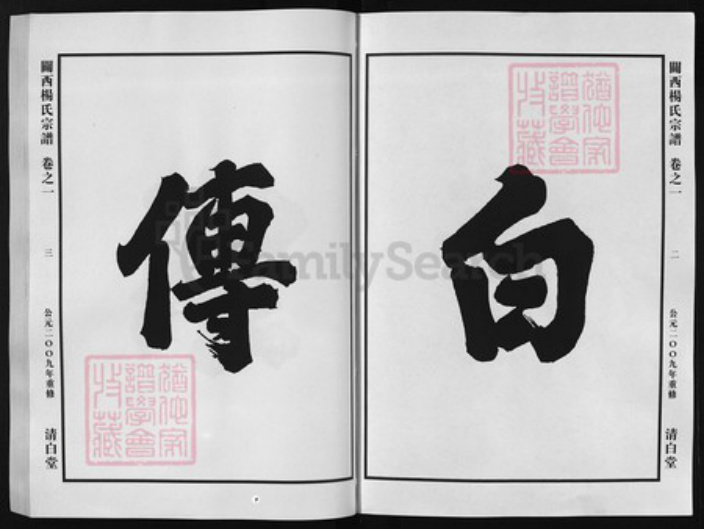 關西楊氏宗譜 卷之一
二
公元二00九年重修
清白堂
白
傳
關西楊氏宗譜 卷之一
三
公元二00九年重修
清白堂
猶他家
譜學會
收藏
猶他家
譜學會
收藏
FamilySearch